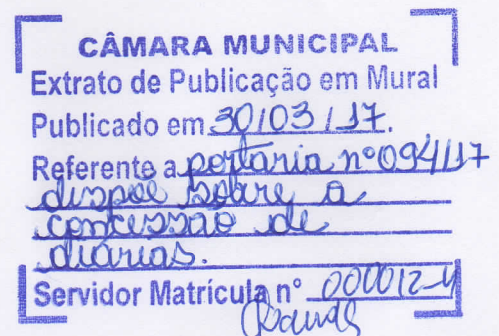 CÂMARA MUNICIPAL
Extrato de Publicação em Mural
Publicado em 30/03/17.
Referente a portaria nº 094/17
dispoe sobre a
concessão de
diárias.
Servidor Matrícula nº 000012-4